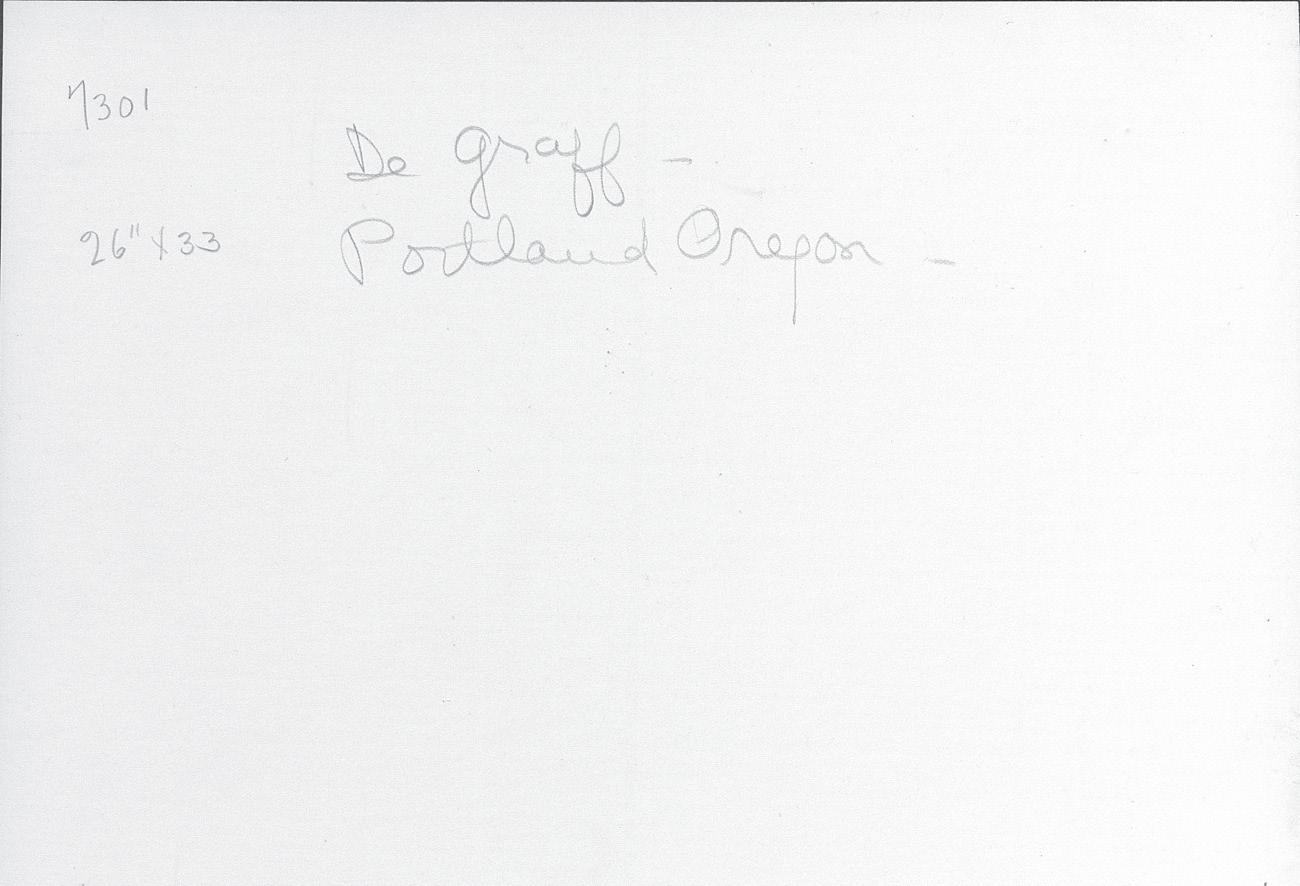 7301
De Graff -
26" x 33
Portland Oregon -